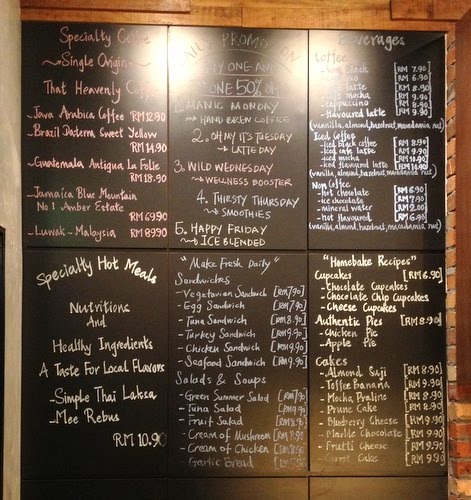 Specialty Coffee
~ Single Origin ~
That Heavenly Coffee
- Java Arabica Coffee RM 12.90
- Brazil Daterra Sweet Yellow
RM 14.90
- Guatemala Antigua La Folie
RM 18.90
- Jamaica Blue Mountain
No.1 Amber Estate
RM 69.90
- Luwak - Malaysia RM 89.90
DAILY PROMOTION
BUY ONE AND
ONE 50% OFF
1. MANIC MONDAY
→ HAND BREW COFFEE
2. OH MY IT'S TUESDAY
→ LATTE DAY
3. WILD WEDNESDAY
→ WELLNESS BOOSTER
4. THIRSTY THURSDAY
→ SMOOTHIES
5. HAPPY FRIDAY
→ ICE BLENDED
Beverages
Coffee
- long black [RM 7.90]
[RM 6.90]
- cafe latte [RM 8.90]
- cafe mocha [RM 9.90]
- cappuccino [RM 8.90]
- flavoured latte [RM 9.90]
(vannilla, almond, hazelnut, macadamia nut)
Iced Coffee
- iced black coffee [RM 8.90]
- iced cafe latte [RM 9.90]
- iced mocha [RM 10.90]
- iced flavoured latte [RM 10.90]
(vanilla, almond, hazelnut, macadamia nut)
Non Coffee
- hot chocolate [RM 6.90]
- ice chocolate [RM 7.90]
- mineral water [RM 2.00]
- hot flavoured [RM 6.90]
(vanilla, almond, hazelnut, macadamia nut)
Specialty Hot Meals
Nutritions
And
Healthy Ingredients
A Taste For Local Flavors
- Simple Thai Laksa
- Mee Rebus
RM 10.90
"Make Fresh Daily"
Sandwiches
- Vegetarian Sandwich [RM 7.90]
- Egg Sandwich [RM 7.90]
- Tuna Sandwich [RM 8.90]
- Turkey Sandwich [RM 9.90]
- Chicken Sandwich [RM 9.90]
- Seafood Sandwich [RM 9.90]
Salads & Soups
- Green Summer Salad [RM 7.90]
- Tuna Salad [RM 9.90]
- Fruit Salad [RM 8.90]
- Cream of Mushroom [RM 8.90]
- Cream of Chicken [RM 8.90]
Garlic Bread
"Homebake Recipes"
Cupcakes [RM 6.90]
- Chocolate Cupcakes
- Chocolate Chip Cupcakes
- Cheese Cupcakes
Authentic Pies [RM 8.90]
- Chicken Pie
- Apple Pie
Cakes
- Almond Suji [RM 8.90]
- Toffee Banana [RM 9.90]
- Mocha Praline [RM 8.90]
- Prune Cake [RM 8.90]
- Blueberry Cheese [RM 9.90]
- Marble Chocolate [RM 9.90]
- Frutti Cheese [RM 9.90]
- Carrot Cake [RM 9.90]